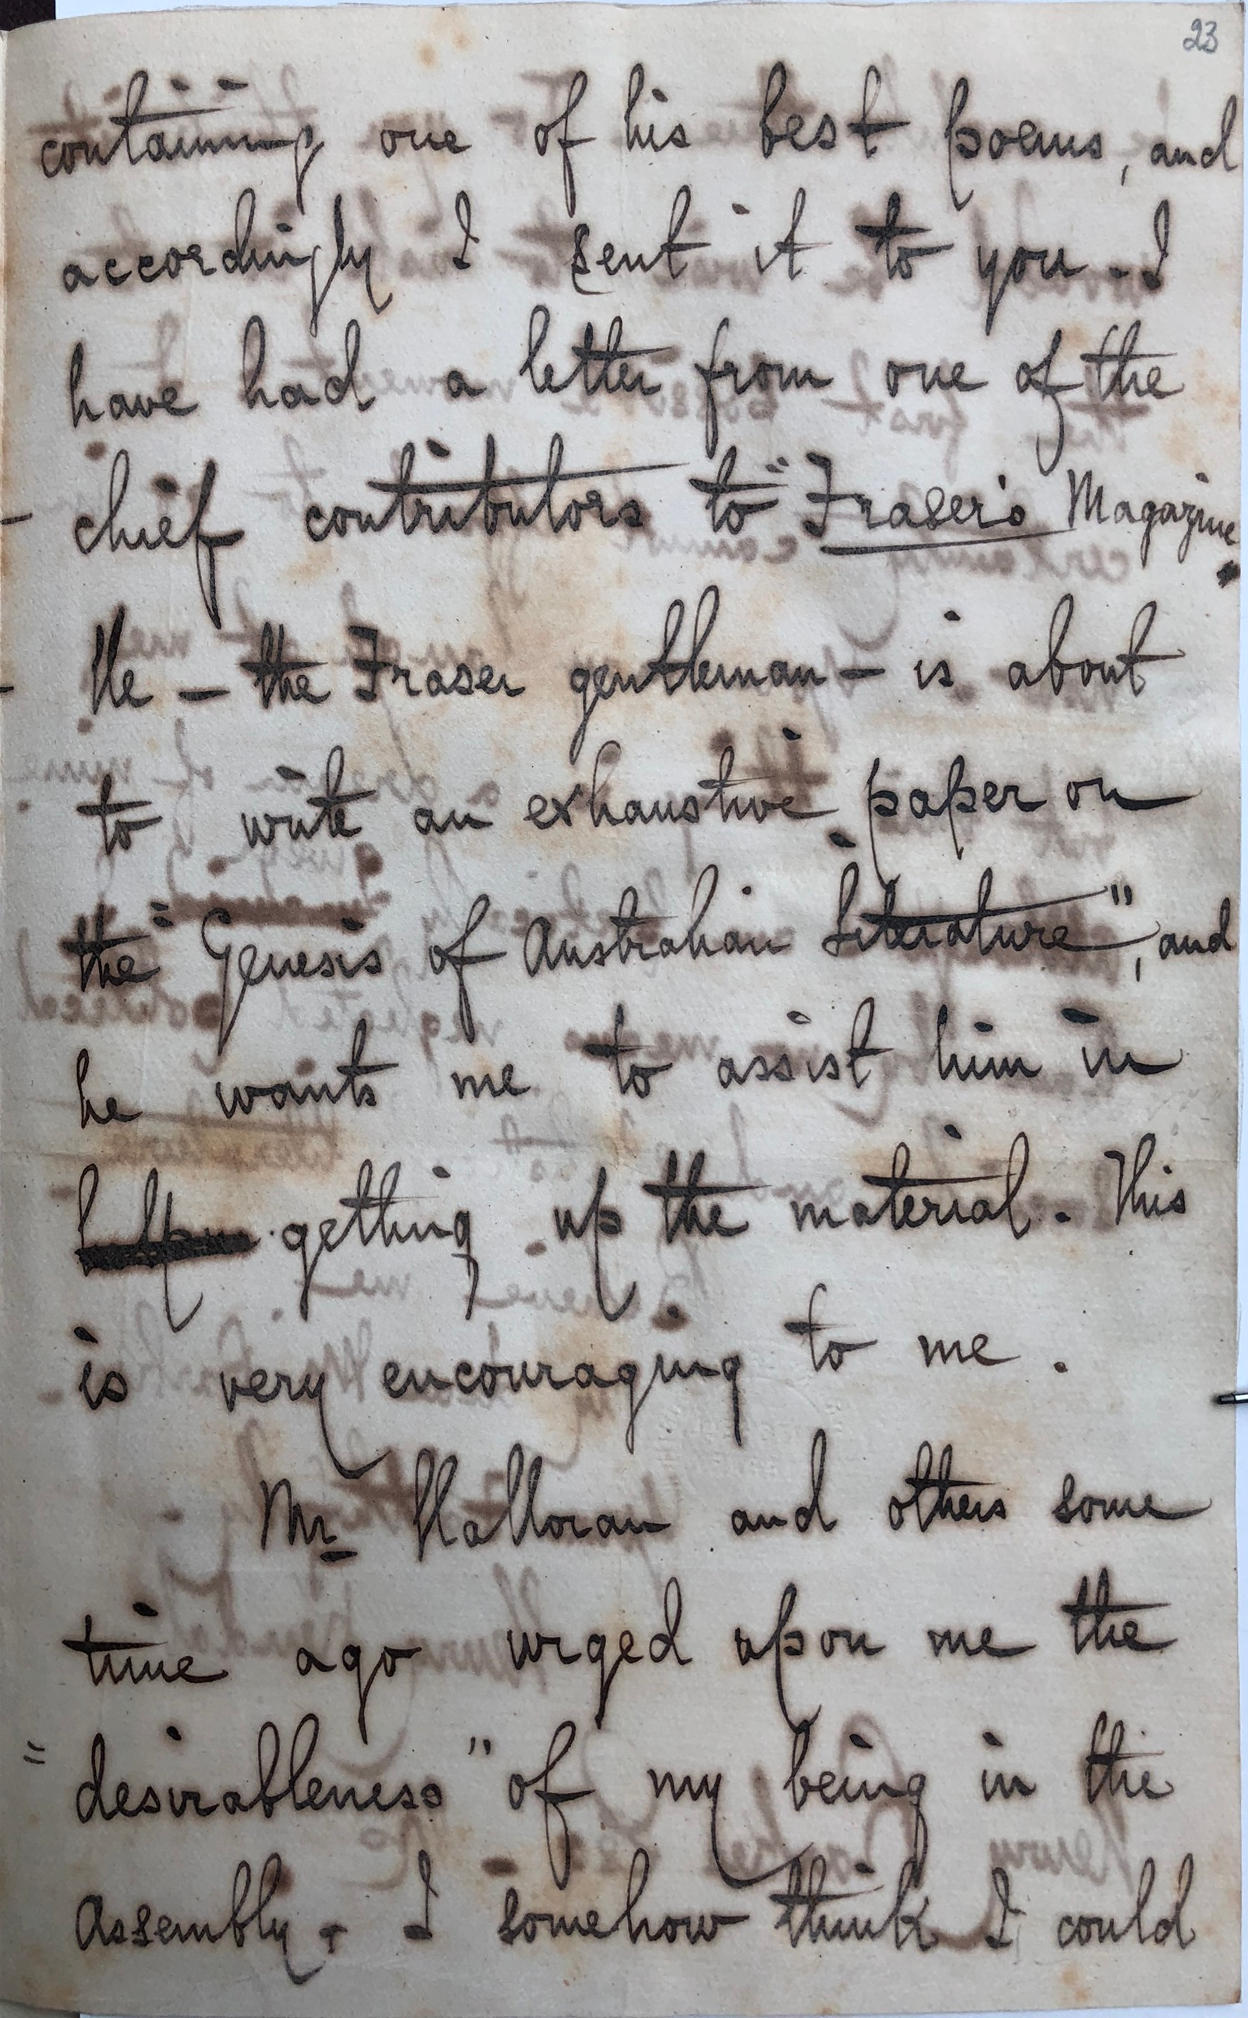 23
containing one of his best poems, and
accordingly I sent it to you. I
have had a letter from one of the
chief contributors to "Fraser's Magazine.
He — the Fraser gentleman — is about
to write an exhaustive paper on
the "Genesis of Australian Literature", and
he wants me to assist him in
getting up the material. This
is very encouraging to me.
Mr Halloran and others some
time ago urged upon me the
"desirableness" of my being in the
Assembly. I somehow think I could